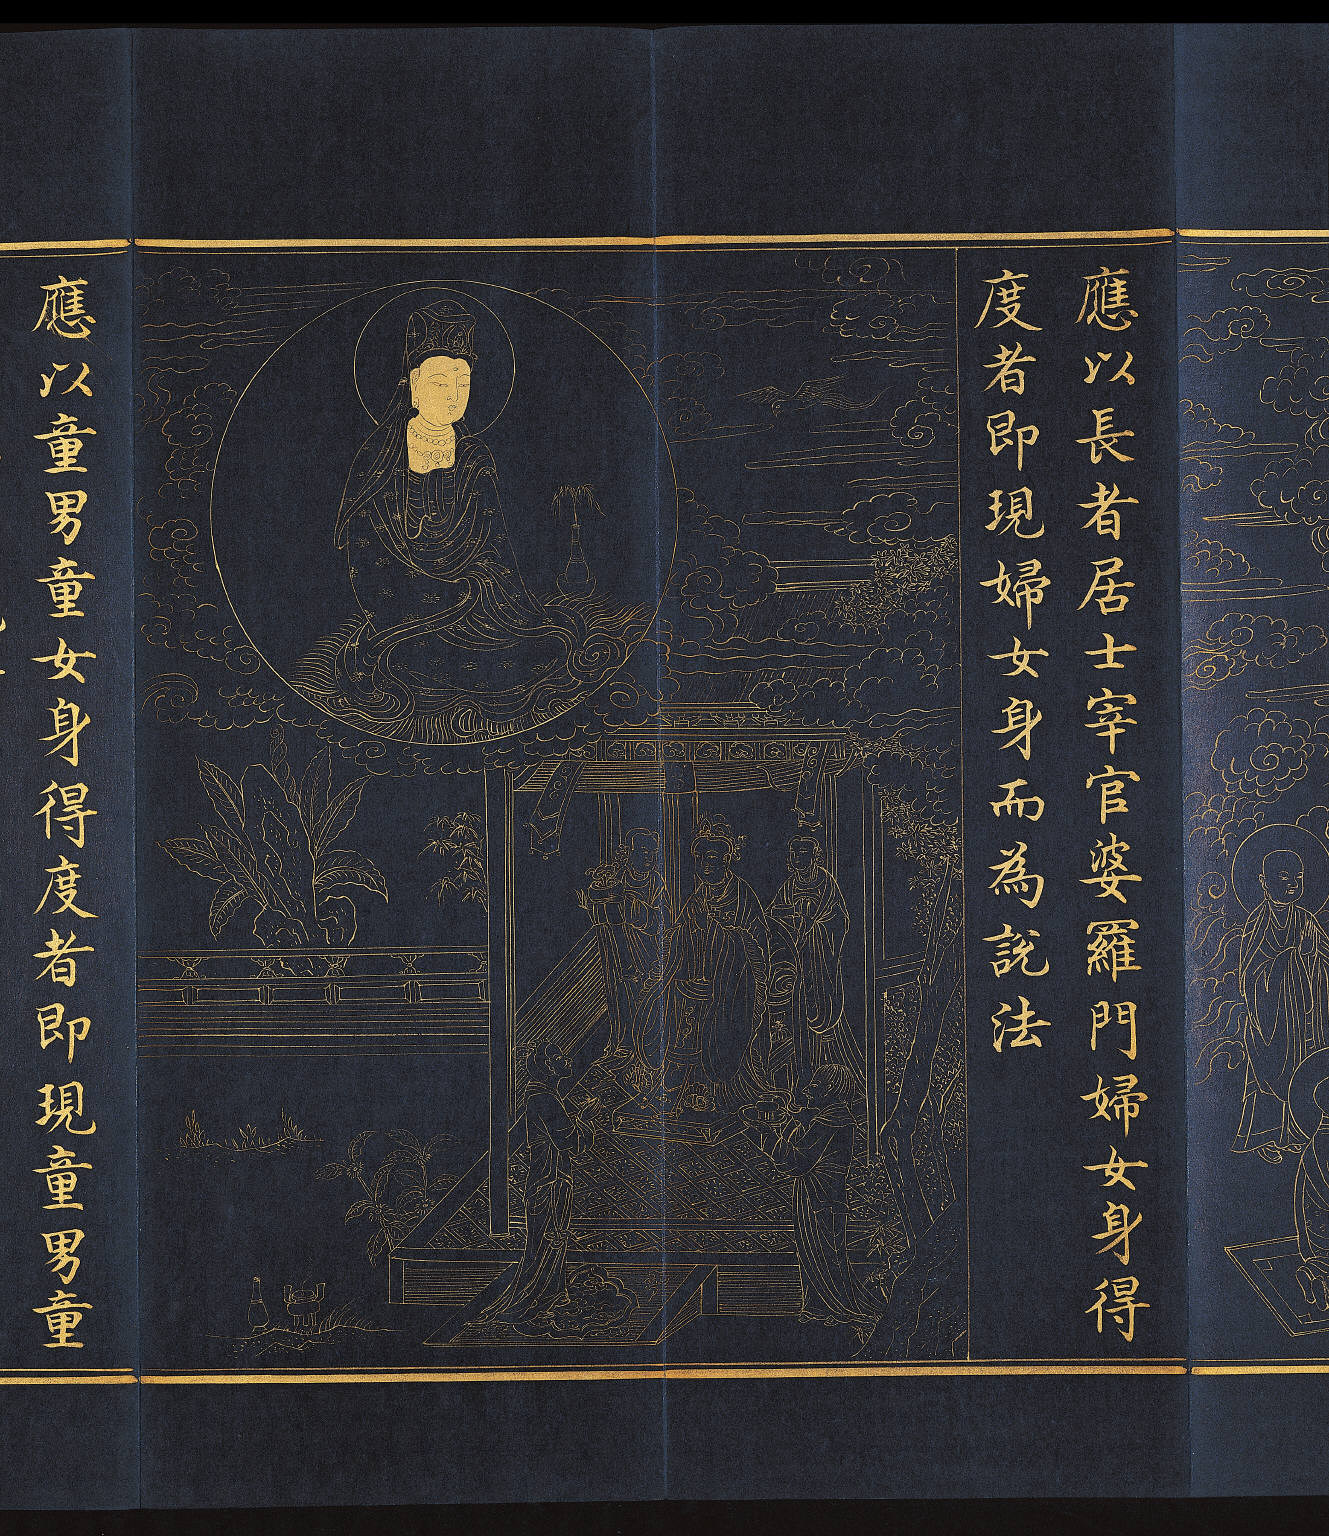 應以長者居士宰官婆羅門婦女身得
度者即現婦女身而為說法
應以童男童女身得度者即現童男童